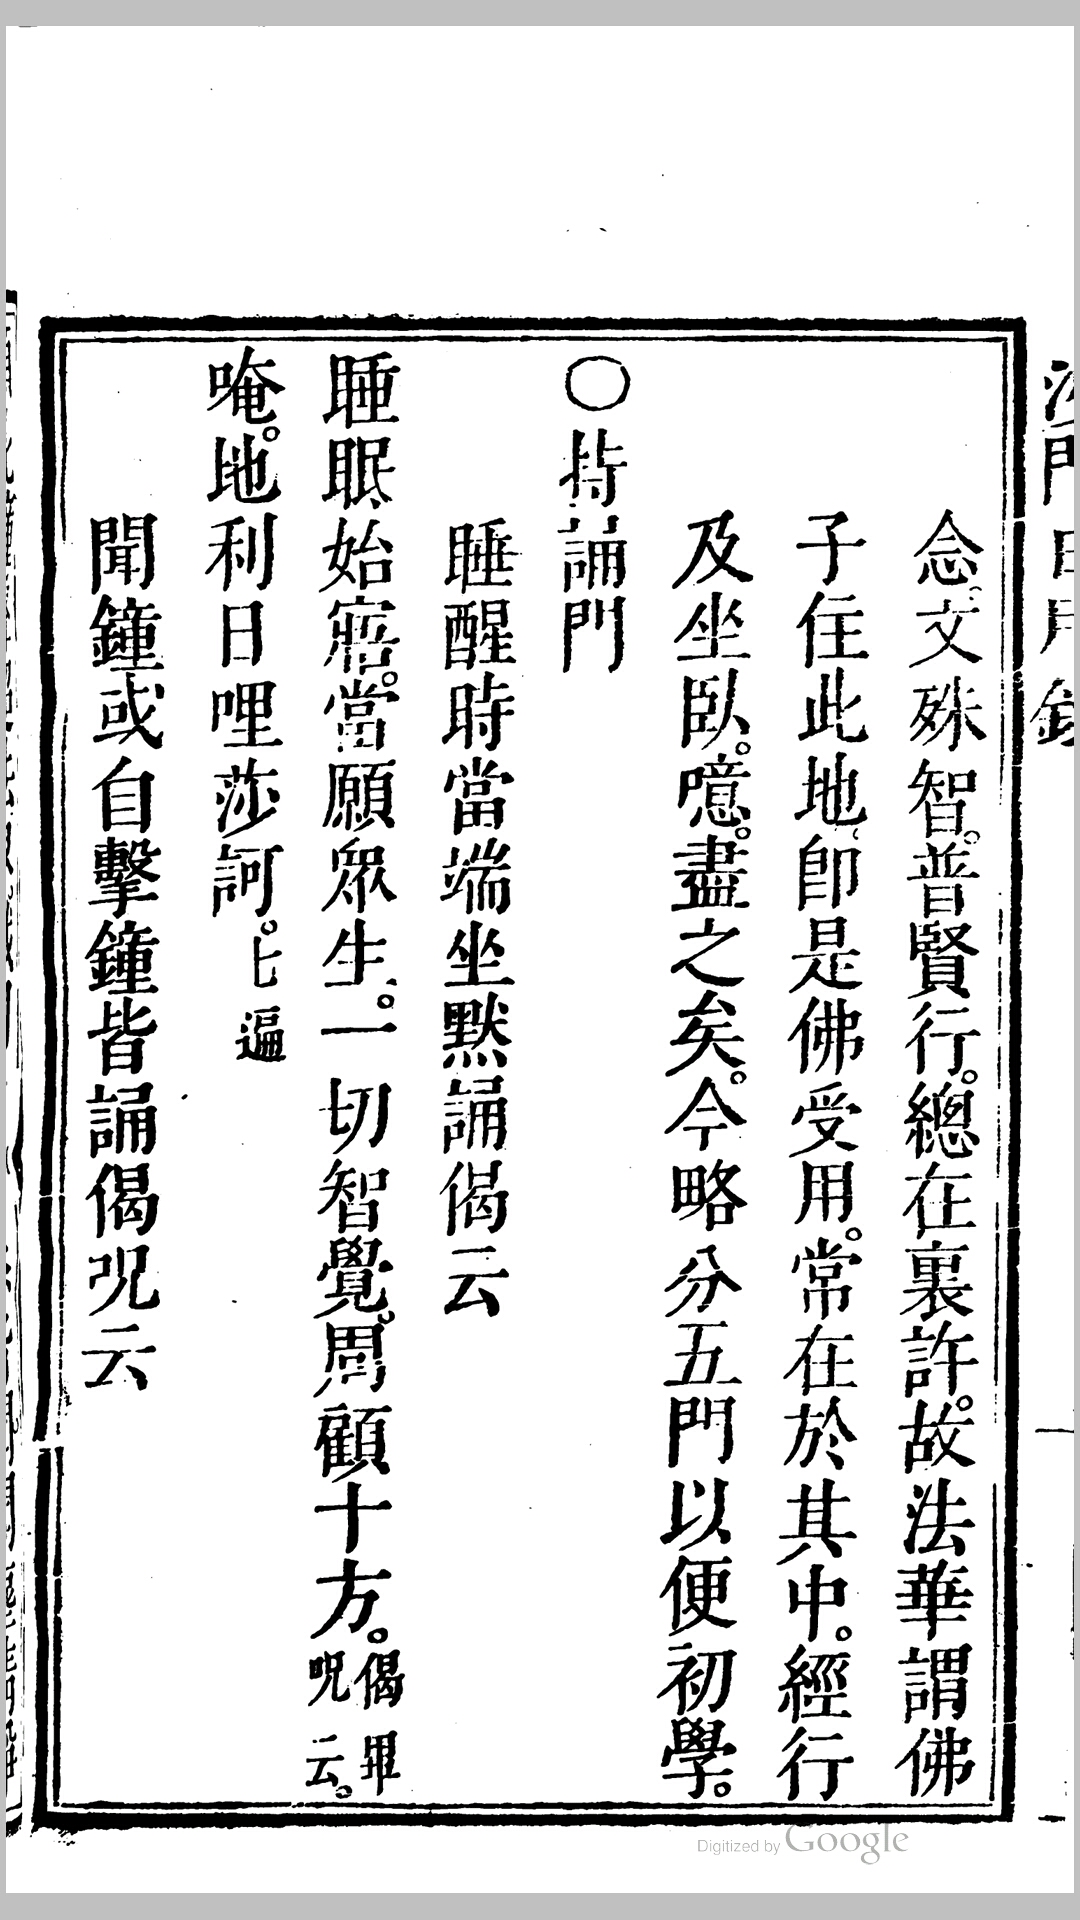 念文殊智。普賢行。總在裏許。故法華謂佛
子住此地、卽是佛受用。常在於其中。經行
及坐臥。噫。盡之矣。今略分五門以便初學。
○持誦門
睡醒時當端坐默誦偈云
睡眠始寤。當願眾生。一切智覺。周顧十方。偈畢
呪云。
唵。地利日哩莎訶。七遍
聞鐘或自擊鐘皆誦偈呪云
沙門日用錄
Digitized by Google